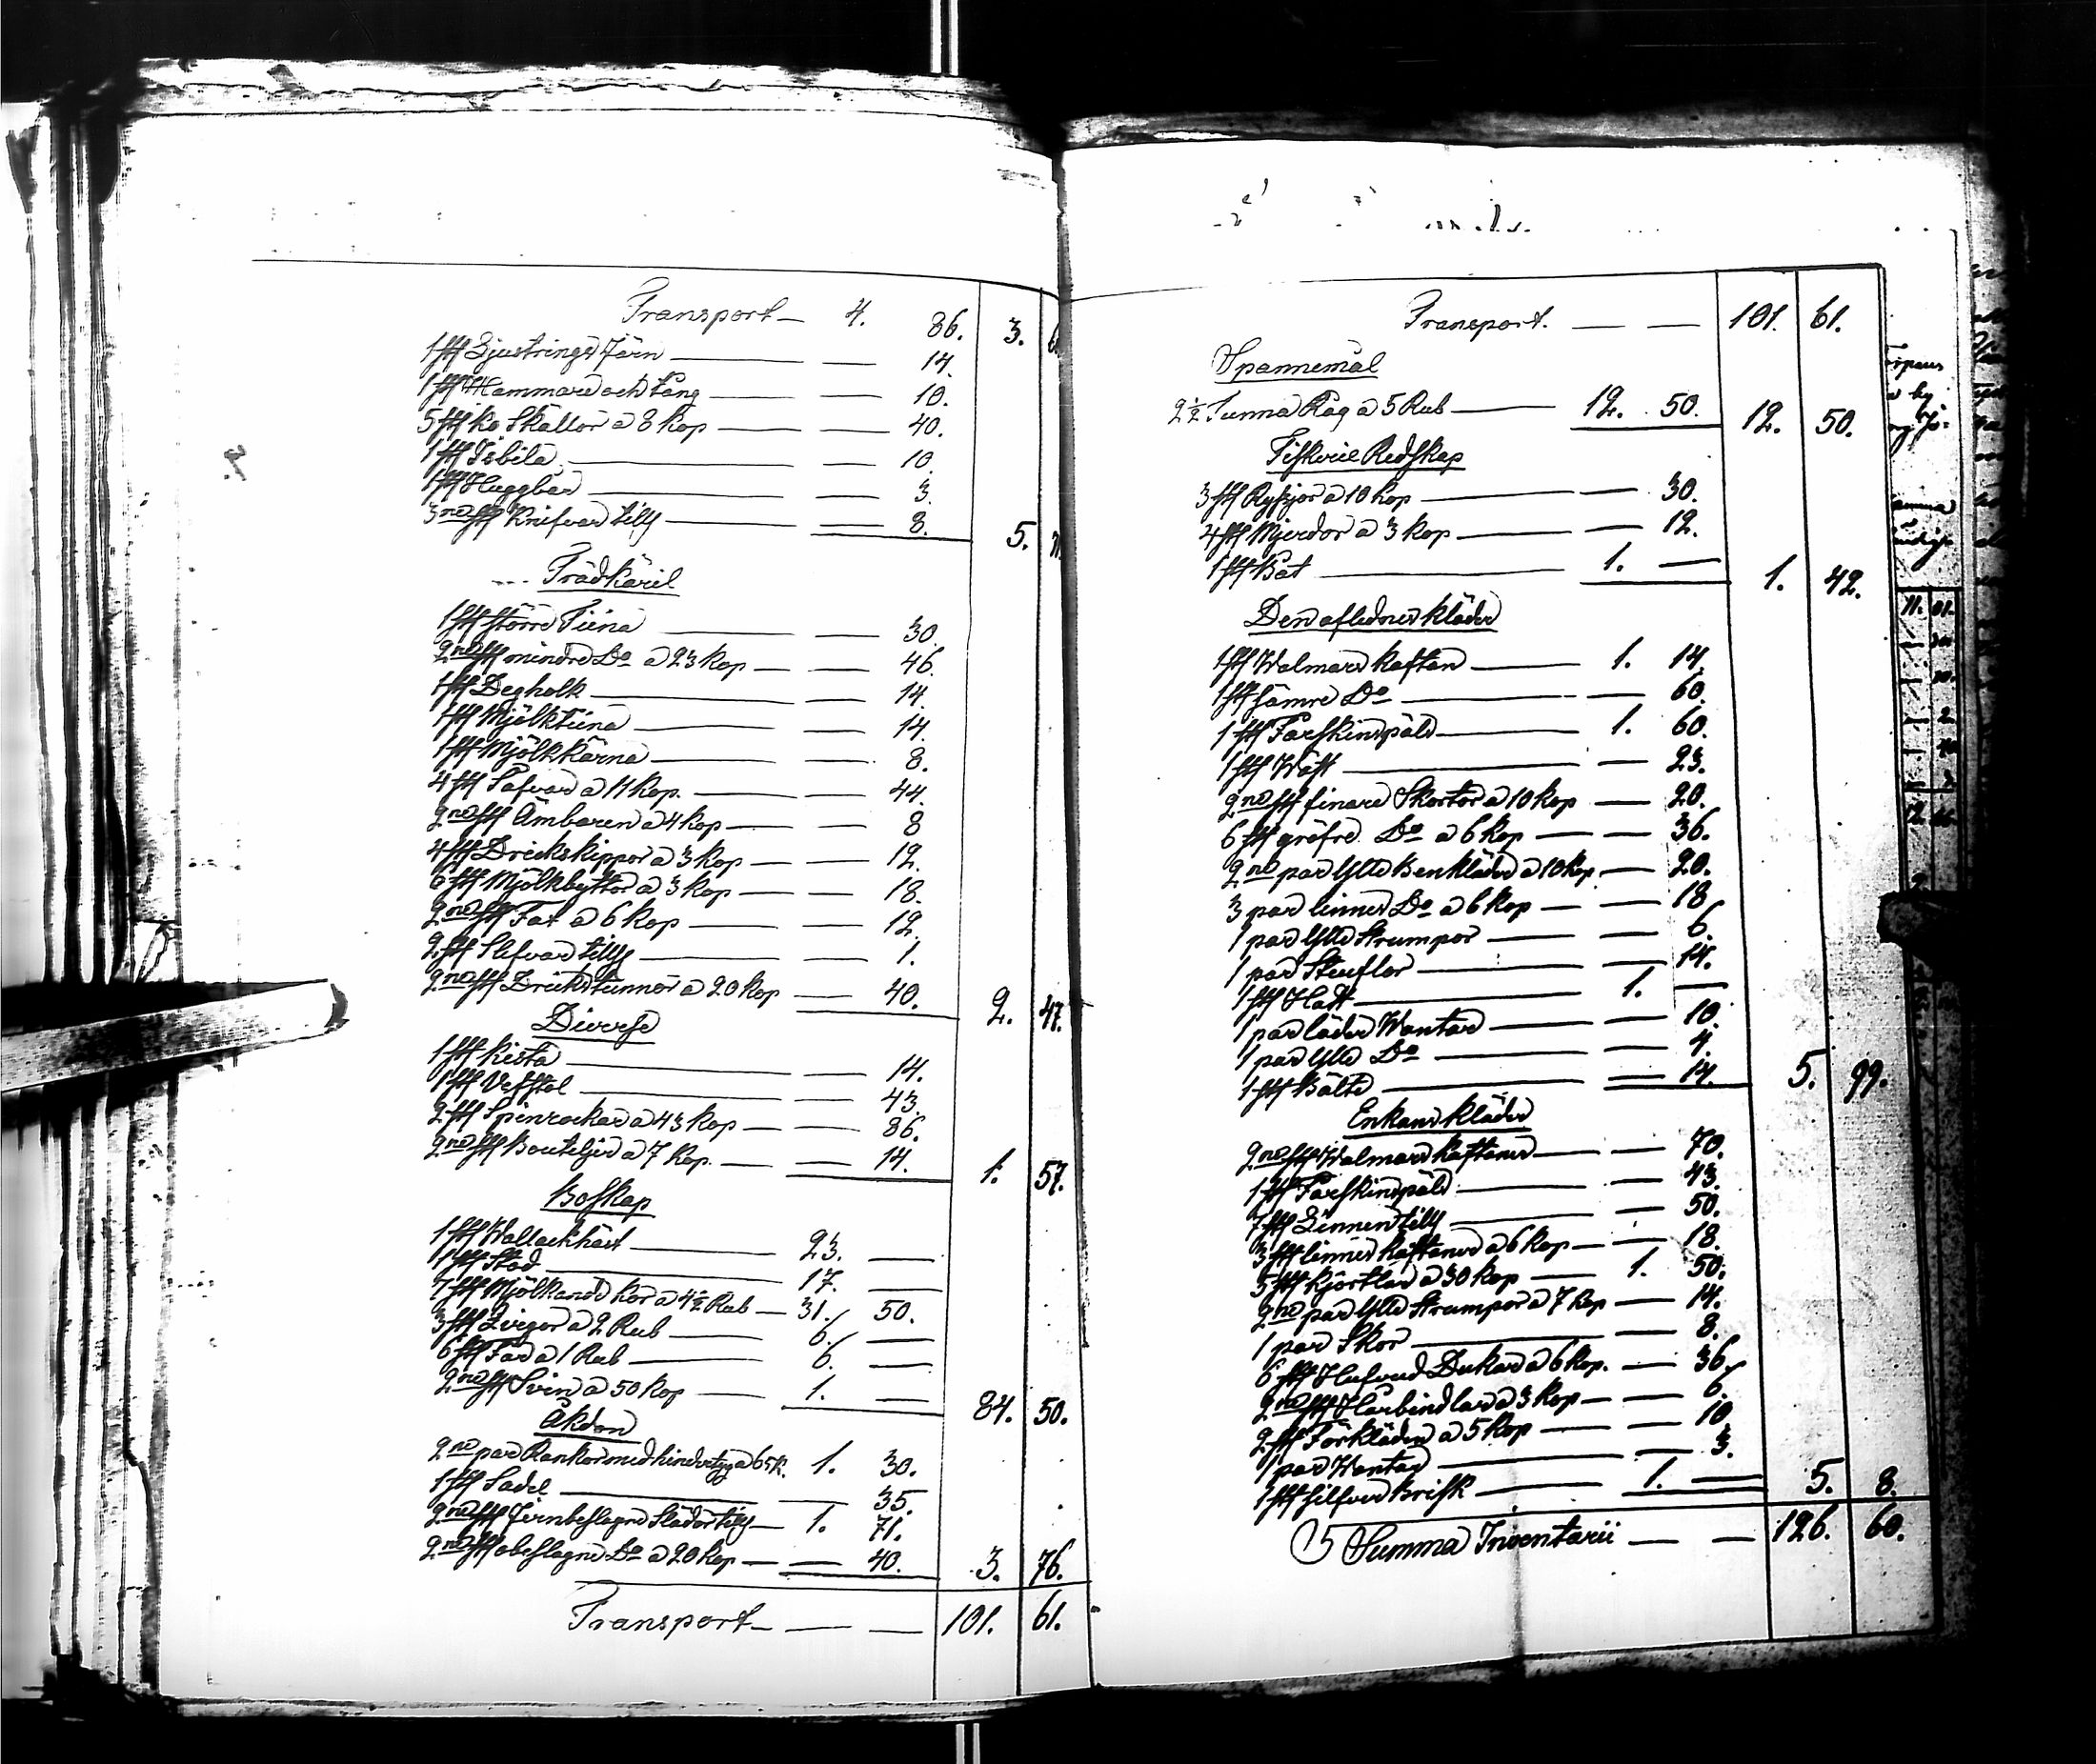 Transport — 4. 86. 3. 6
1 st Ljustrings Jern — — 14.
1 st Hammare och tång — — 10.
5 st Ko Skällor a 8 kop — — 40.
1 st Isbila — — 10.
1 st Huggbär — — 3.
3ne st Knifvar tills — — 8. 5. 71
Trädkäril
1 st större Tiina — — 30.
2ne st mindre Do a 23 kop — — 46.
1 st Degholk — — 14.
1 st Mjölktiina — — 14.
1 st Mjölkkärna — — 8.
4 st Såfvar a 11 kop. — — 44.
2ne st Ämbaren a 4 kop — — 8
4 st Drickskippor a 3 kop — — 12.
6 st Mjölkbyttor a 3 kop — — 18.
2ne st Fat a 6 kop — — 12.
2 st Slefvar tills — — 1.
2ne st Drickstunnor a 20 kop — — 40. 2. 47.
Diverse
1 st Kista — — 14.
1 st Väfstol — — 43.
2 st Spinrockar a 43 kop — — 86.
2ne st Bouteljer a 7 kop. — — 14. 1. 57.
Boskap
1 st Wallackhäst — 23. —
1 st Stod — 17. —
7 st Mjölkande kor a 4½ Rub — 31. 50.
3 st Qvigor a 2 Rub — 6. —
6 st Får a 1 Rub — 6. —
2ne st Svin a 50 kop — 1. — 84. 50.
Åkdon
2ne par Rankor med hindertyg a 65 k. 1. 30.
1 st Sadel — — 35.
2ne st Jernbeslagne Slädor tills — 1. 71.
2ne st obeslagne Do a 20 kop — — 40. 3. 76.
Transport — — — 101. 61.
Transport. — — 101. 61.
Spannemål
2½ Tunna Råg a 5 Rub — 12. 50. 12. 50.
Fiskerie Redskap
3 st Ryssjor a 10 kop — — 30.
4 st Mjerdor a 3 kop — — 12.
1 st Båt — 1. — 1. 42.
Den aflednes kläder
1 st Walmars kaftan — 1. 14.
1 st sämre Do — — 60.
1 st Fårskinspäls — 1. 60.
1 st Wäst — — 23.
2ne st finare Skortor a 10 kop — — 20.
6 st gröfre Do a 6 kop — — 36.
2ne par Ylle Benkläder a 10 kop — — 20.
3 par linnes Do a 6 kop — — 18
1 par Ylle Strumpor — — 6.
1 par Stöflor — — 14.
1 st Hatt — 1. —
1 par läder Wantar — — 10.
1 par Ylle Do — — 4.
1 st Bälte — — 14. 5. 99.
Enkans kläder
2ne st Walmars kaftaner — — 70.
1 st Fårskinspäls — — 43.
7 st Linnen tills — — 50.
3 st linnes kaftaner a 6 kop — — 18.
5 st kjortlar a 30 kop — 1. 50.
2ne par Ylle Strumpor a 7 kop — 14.
1 par Skor — — 8.
6 st Hufvud Dukar a 6 kop. — 36.
2ne st Hårbindlar a 3 kop — — 6.
2 st Förkläden a 5 kop — — 10
1 par Wantar — — 3.
1 st silfver Brisk — 1. — 5. 8.
Summa Inventarii — — 126. 60.